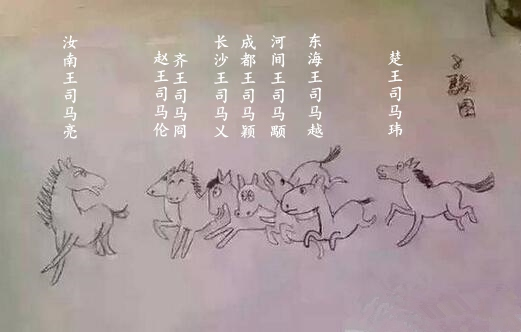 八骏图
楚王司马玮
东海王司马越
河间王司马颙
成都王司马颖
长沙王司马乂
齐王司马冏
赵王司马伦
汝南王司马亮